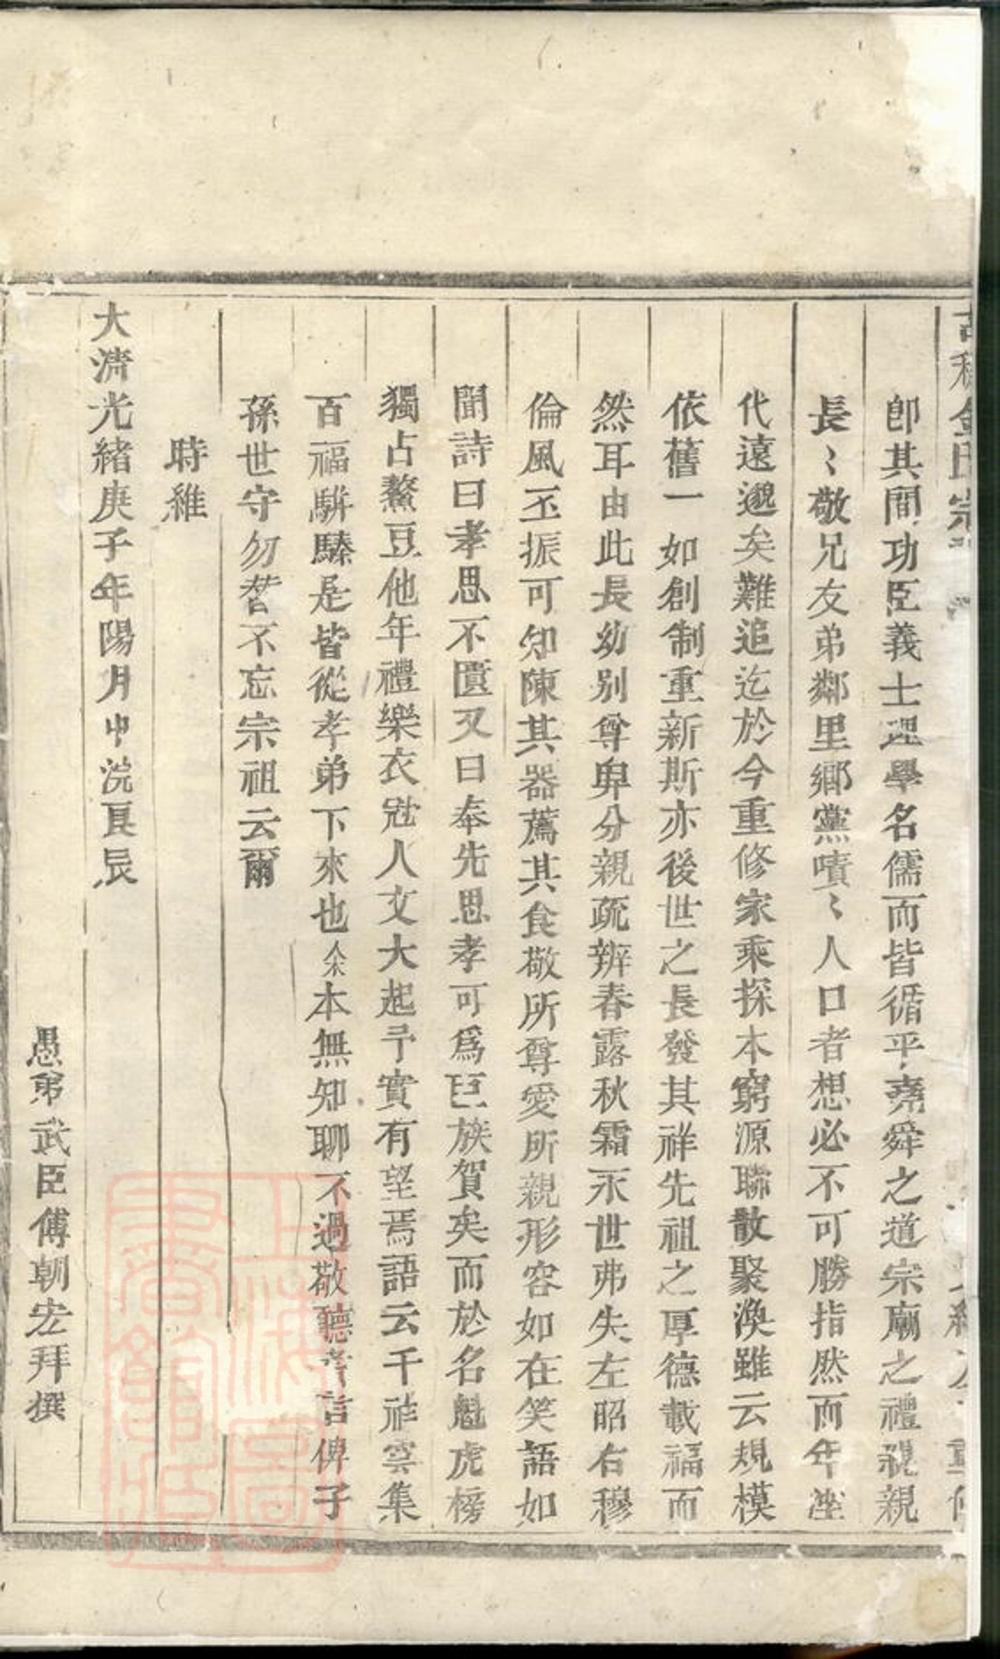 金氏宗
卽其間功臣義士理學名儒而皆循乎堯舜之道宗廟之禮親親
長〻敬兄友弟鄰里鄉黨嘖〻人口者想必不可勝指然而年湮
代遠邈矣難追迄於今重修家乘探本窮源聯散聚渙雖云規模
依舊一如創制重新斯亦後世之長發其祥先祖之厚德載福而
然耳由此長幼别尊卑分親疏辨春露秋霜永世弗失左昭右穆
倫風丕振可知陳其器薦其食敬所尊愛所親形容如在笑語如
聞詩曰孝思不匱又曰奉先思孝可爲巨族賀矣而於名魁虎榜
獨占鰲豆他年禮樂衣冠人文大起予實有望焉語云千祥雲集
百福駢臻是皆從孝弟下來也余本無知聊不過敬聽考言俾子
孫世守勿替不忘宗祖云爾
時維
大淸光緖庚子年陽月中浣良辰
愚弟武臣傅朝宏拜撰
上海圖書館藏